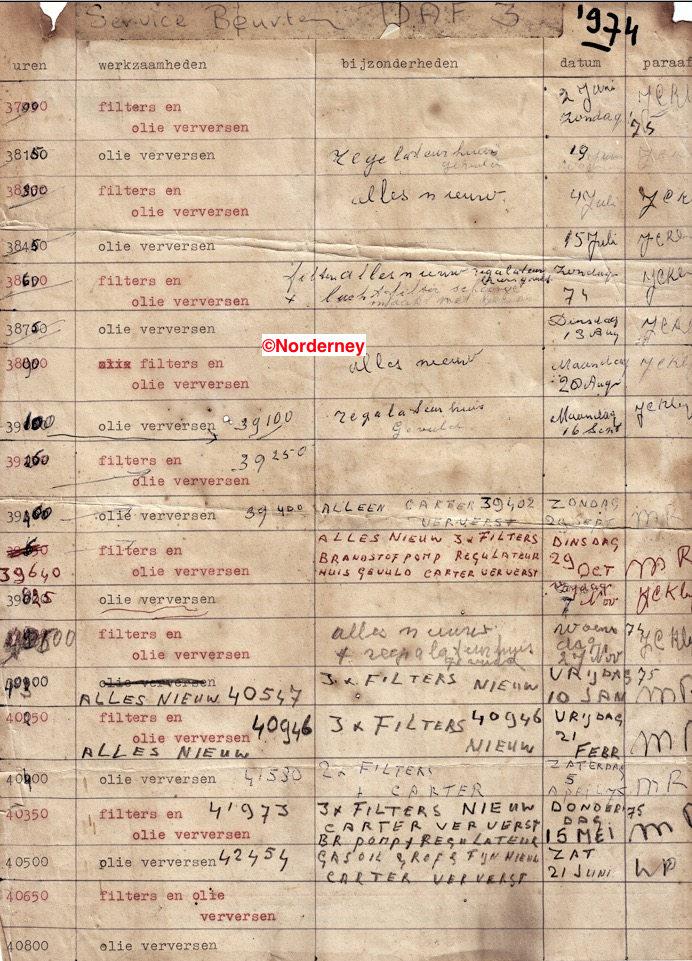 Service Beurten DAF 3 1974
uren werkzaamheden bijzonderheden datum paraaf
filters en 2 Juni
olie verversen Zondag 75
38150 olie verversen regelateurhuis 19
gevuld
filters en alles nieuw. 4 Juli
olie verversen
38450 olie verversen 15 Juli
filters en filters alles nieuw regulateur zondag
olie verversen + luchtfilter 74
38750 olie verversen Dinsdag
13 Aug
©Norderney
filters en alles nieuw Maandag
olie verversen 20 Aug
39100 olie verversen 39100 regelateurhuis Maandag
Gevuld 16 Sept
filters en 39250
olie verversen
olie verversen 39400 ALLEEN CARTER 39402 ZONDAG
VERVERST 29 SEPT MR
filters en ALLES NIEUW 3x FILTERS DINSDAG
BRANDSTOFPOMP REGULATEUR 29
39640 olie verversen HUIS GEVULD CARTER VERVERST OCT MR
olie verversen 7 Nov
filters en alles nieuw woens 74
olie verversen + regelateurhuis dag
gevuld 27 Nov
olie verversen 3x FILTERS NIEUW VRIJDAG 75
ALLES NIEUW 40547 10 JAN MR
filters en 40946 3x FILTERS 40946 VRIJDAG
olie verversen NIEUW 21
ALLES NIEUW FEBR MR
olie verversen 41530 2x FILTERS ZATERDAG
+ CARTER 5 APRIL 75 MR
40350 filters en 41973 3x FILTERS NIEUW DONDER 75
olie verversen CARTER VERVERST DAG
BR POMP + REGULATEUR 15 MEI MR
40500 plie verversen 42454 GASOIL GROF & FIJN NIEUW ZAT
CARTER VERVERST 21 JUNI WP
40650 filters en olie
verversen
40800 olie verversen